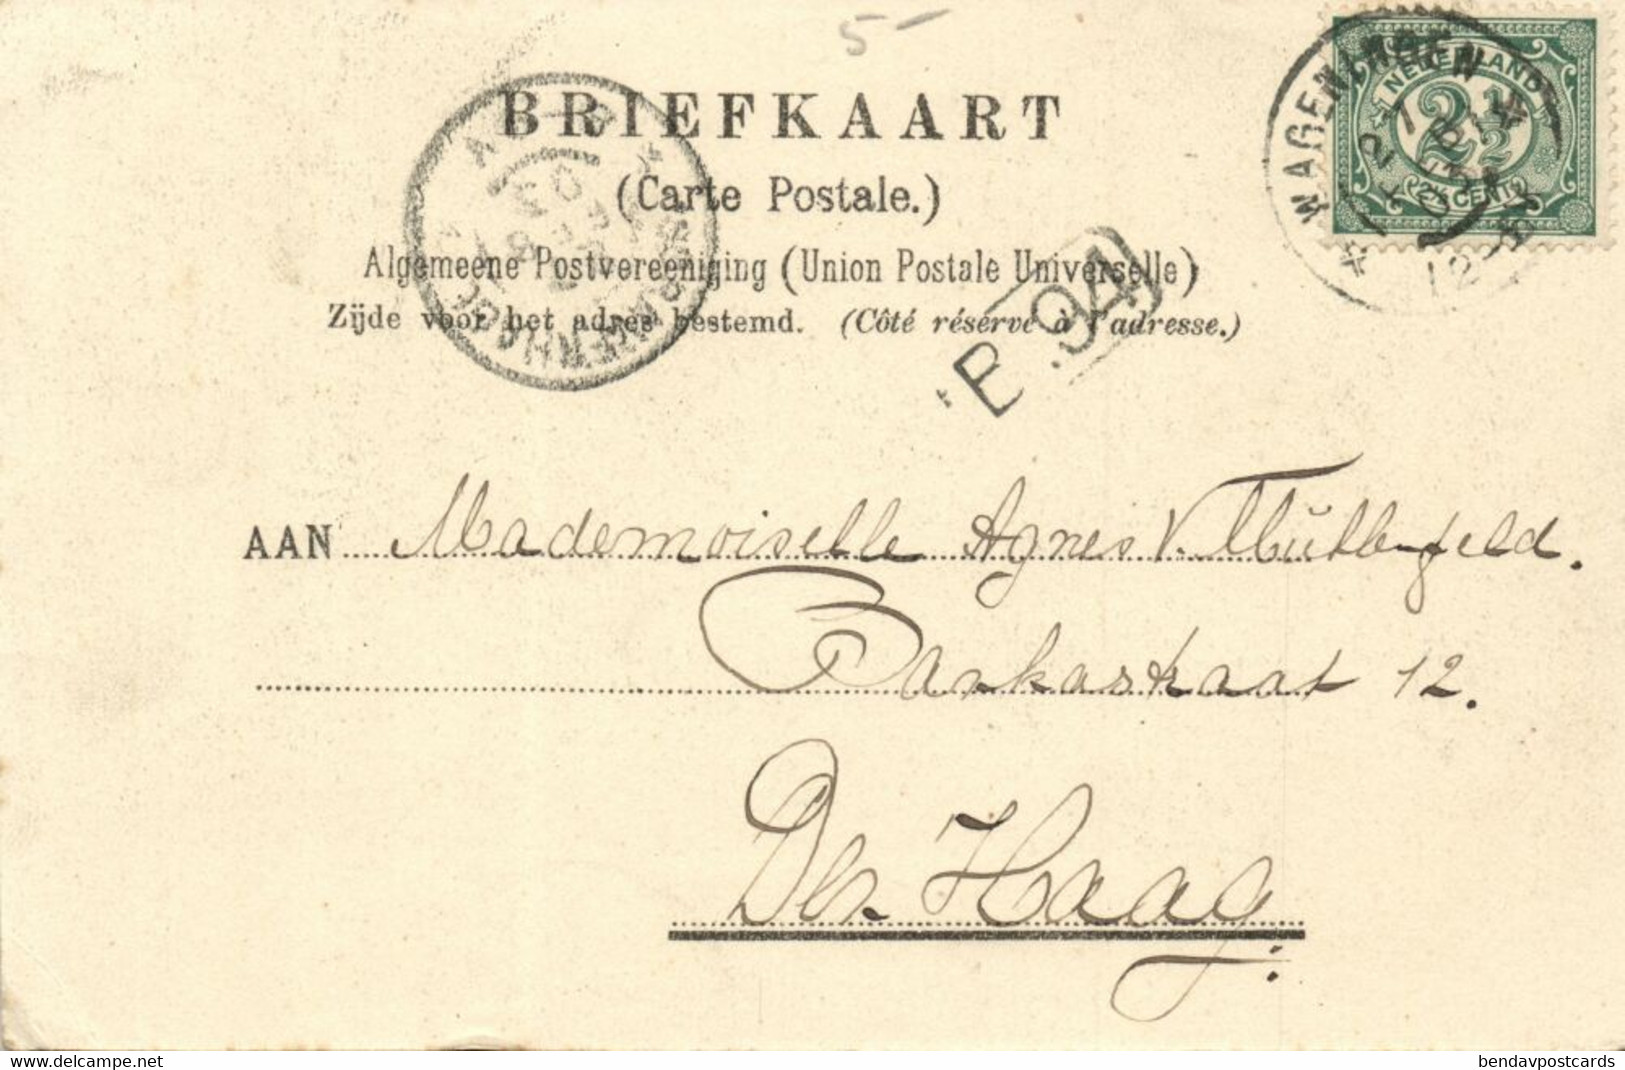 5-
BRIEFKAART
(Carte Postale.)
Algemeene Postvereeniging (Union Postale Universelle)
Zijde voor het adres bestemd. (Côté réservé à l'adresse.)
WAGENINGEN
NEDERLAND
2½
2½ CENT
P. 94
'S GRAVENHAGE
AAN Mademoiselle Agnes V. Mühlenfeld.
Bankastraat 12.
Den Haag.
delcampe.net
bendavpostcards